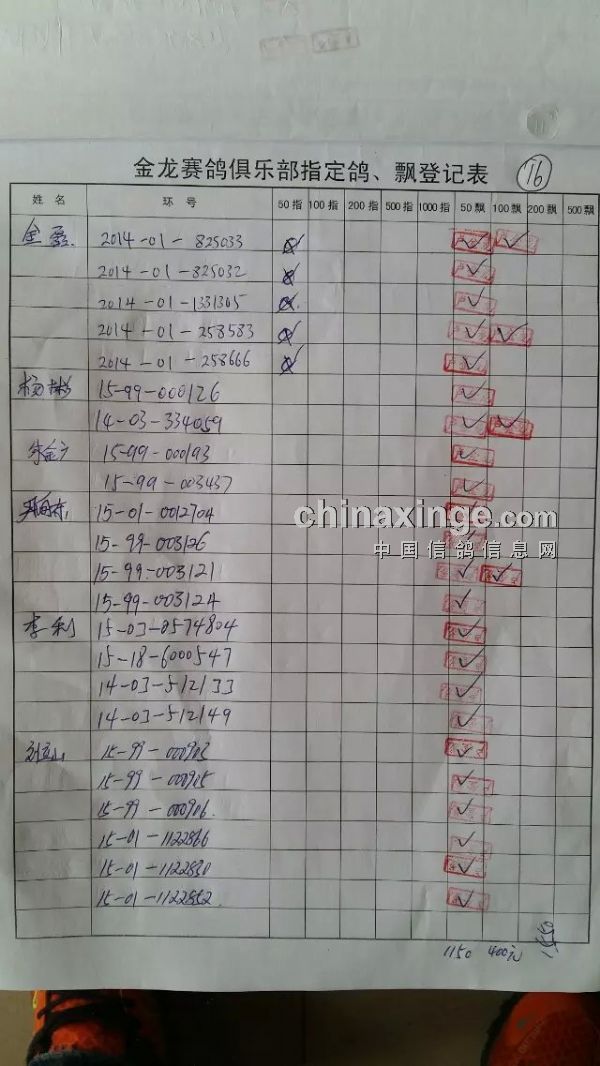 金龙赛鸽俱乐部指定鸽、飘登记表 76
姓名 环号 50指 100指 200指 500指 1000指 50飘 100飘 200飘 500飘
金磊 2014-01-825033
2014-01-825032
2014-01-1331305
2014-01-258583
2014-01-258666
杨彬 15-99-000126
14-03-334059
15-99-000193
15-99-003437
15-01-0012704
15-99-003126
15-99-003121
15-99-003124
李利 15-03-0574804
15-18-6000547
14-03-512133
14-03-512149
刘立山 15-99-000903
15-99-000905
15-99-000906
15-01-1122866
15-01-1122850
15-01-1122852
1150 400元 1550
chinaxinge.com
中国信鸽信息网